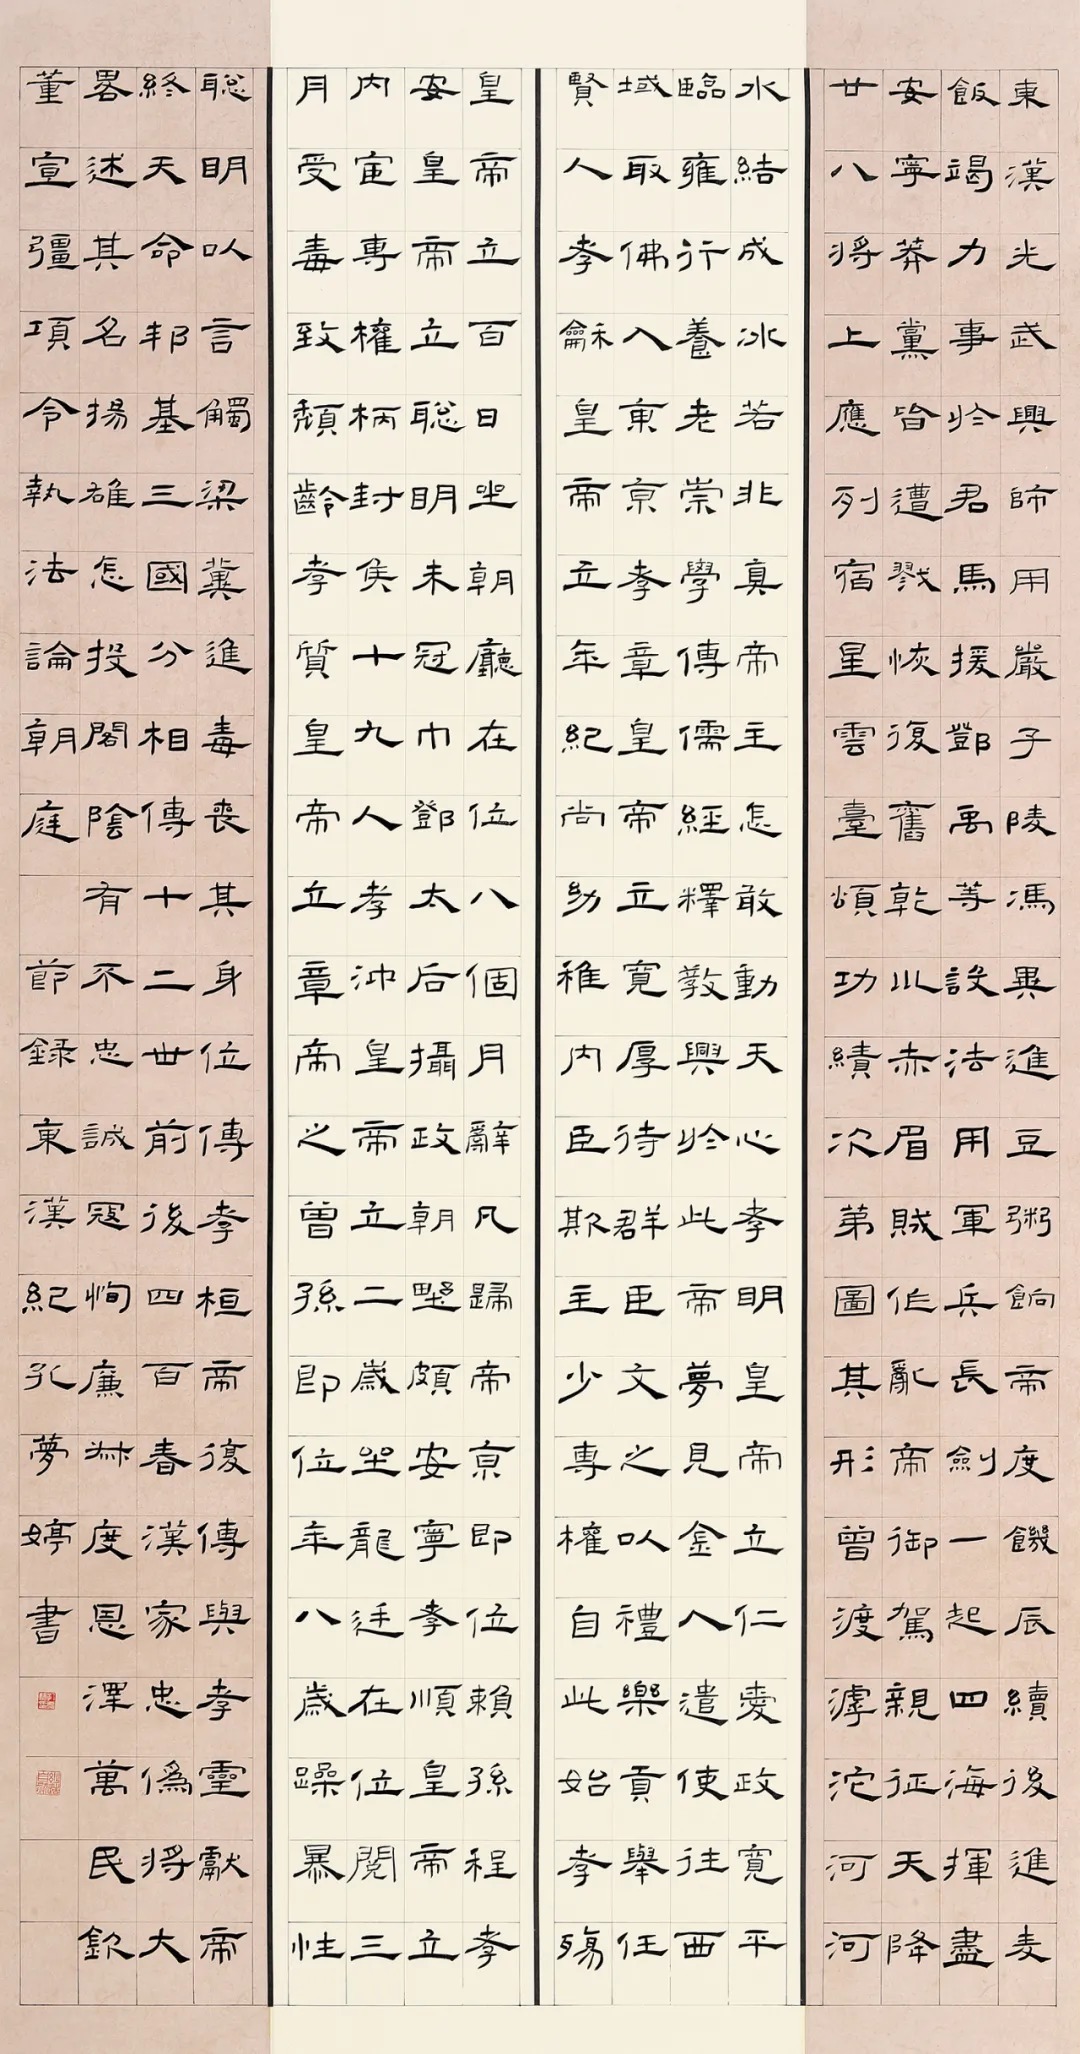 東漢光武興師用嚴子陵馮異進豆粥餉帝度饑辰續後進麦
飯竭力事於君馬援鄧禹等設法用軍兵長劍一起四海揮盡
安寧莽黨皆遭戮恢復舊乾巛赤眉賊作亂帝御駕親征天降
廿八將上應列宿星雲臺頌功績次苐圖其形曾渡滹沱河河
水結成冰若非真帝主怎敢動天心孝明皇帝立仁愛政寬平
臨雍行養老崇學傳儒經釋教興於此帝夢見金人遣使往西
域取佛入東京孝章皇帝立寬厚待群臣文之以禮樂貢舉任
賢人孝龢皇帝立年紀尚幼稚内臣欺主少專權自此始孝殤
皇帝立百日坐朝廳在位八個月辭凡歸帝京即位賴孫程孝
安皇帝立聡明未冠巾鄧太后攝政朝野頗安寧孝順皇帝立
内宦專權柄封侯十九人孝沖皇帝立二歲坐龍廷在位閱三
月受毒致頹齡孝質皇帝立章帝之曾孫即位年八歲躁暴性
聡明以言觸梁冀進毒喪其身位傳孝桓帝復傳與孝靈獻帝
終天命邦基三國分相傳十二世前後四百春漢家忠僞將大
畧述其名揚雄怎投閣陰有不忠誠寇恂廉叔度恩澤萬民欽
董宣彊項令執法論朝庭 節録東漢紀孔夢婷書